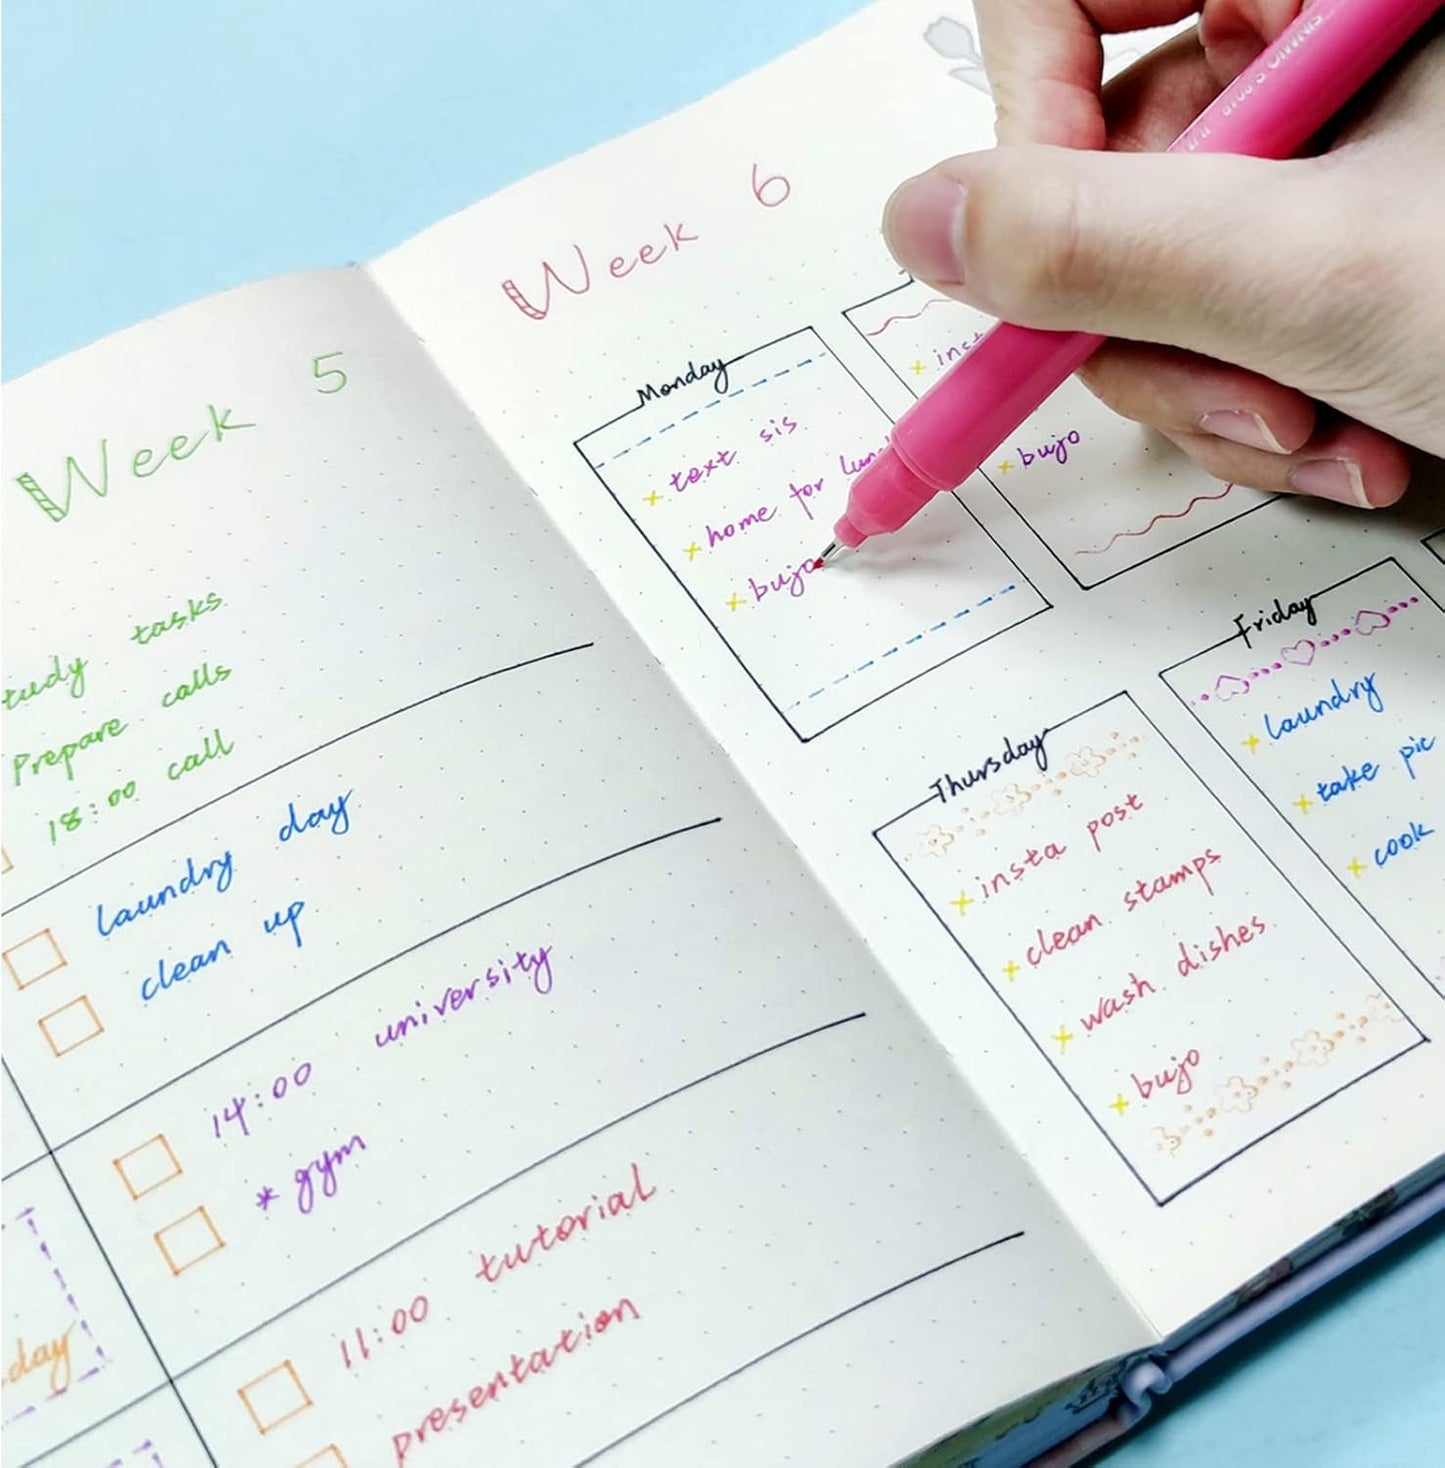 Week 5
tasks
Prepare calls
18:00 call
laundry day
clean up
14:00 university
* gym
11:00 tutorial
presentation
day
Week 6
Monday
text sis
home for
bujo
bujo
Thursday
insta post
clean stamps
wash dishes
bujo
Friday
laundry
take pic
cook